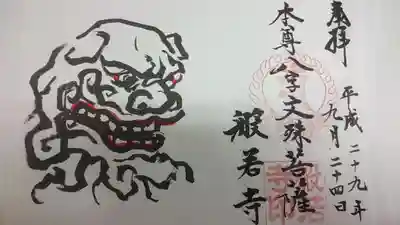 奉拝
平成二十九年
九月二十四日
本尊八字文殊菩薩
般若寺